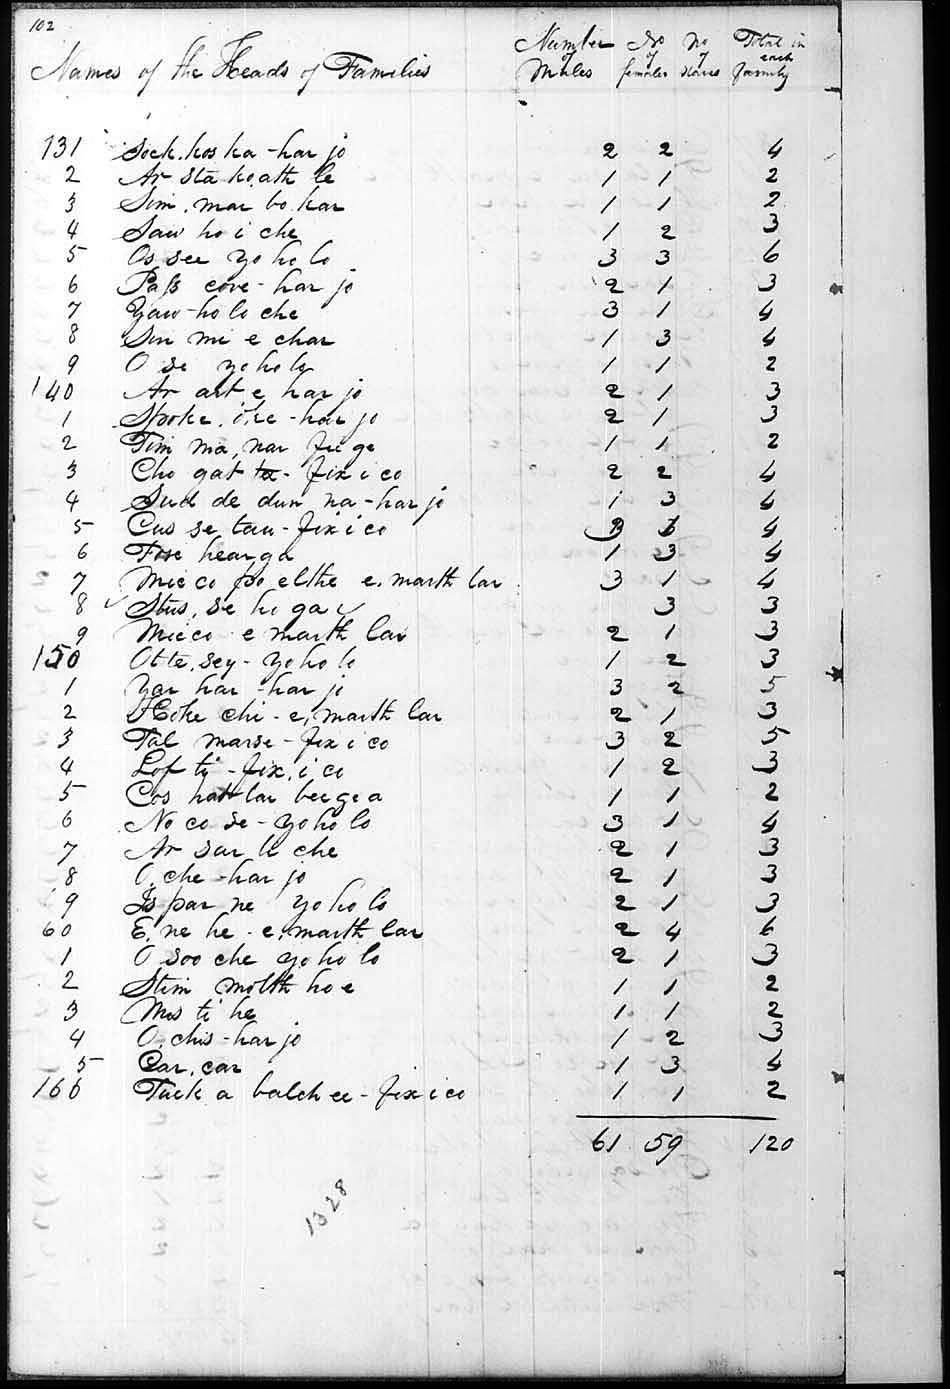 102
Names of the Heads of Families Number of Males No of females No of slaves Total in each family
131 Sock.kos ka-har jo 2 2 4
2 Ar sta ko.ath le 1 1 2
3 Sim.mar bo.kar 1 1 2
4 Saw ho i che 1 2 3
5 Os see yo ho lo 3 3 6
6 Paſs cove-har jo 2 1 3
7 Yaw-ho lo che 3 1 4
8 Sin mi e char 1 3 4
9 O se yo ho lo 1 1 2
140 Ar art e har jo 2 1 3
1 -har jo 2 1 3
2 Tim ma, nar 1 1 2
3 Cho gat - fix i co 2 2 4
4 Sud de dun na-har jo 1 3 4
5 Cus se tau-fix i co 4
6 hear ga 1 3 4
7 Micco po elthe e. marth lar 3 1 4
8 Stus, se ho ga 3 3
9 Micco e marth lar 2 1 3
150 Ot te, sey-yo ho lo 1 2 3
1 Yar har-har jo 3 2 5
2 Hoke chi-e, marth lar 2 1 3
3 Tal marse-fix i co 3 2 5
4 Lof ti-fix, i co 1 2 3
5 Cos lar bee ge a 1 1 2
6 No co se-yo ho lo 3 1 4
7 Ar sar le che 2 1 3
8 O. che-har jo 2 1 3
9 Is par ne yo ho lo 2 1 3
60 E. ne he-e, marth lar 2 4 6
1 O soo che yo ho lo 2 1 3
2 Stim molth ho e 1 1 2
3 Mis ti he 1 1 2
4 O, chis-har jo 1 2 3
5 Car, car 1 3 4
166 Tuck a balch ee-fix i co 1 1 2
61 59 120
1328